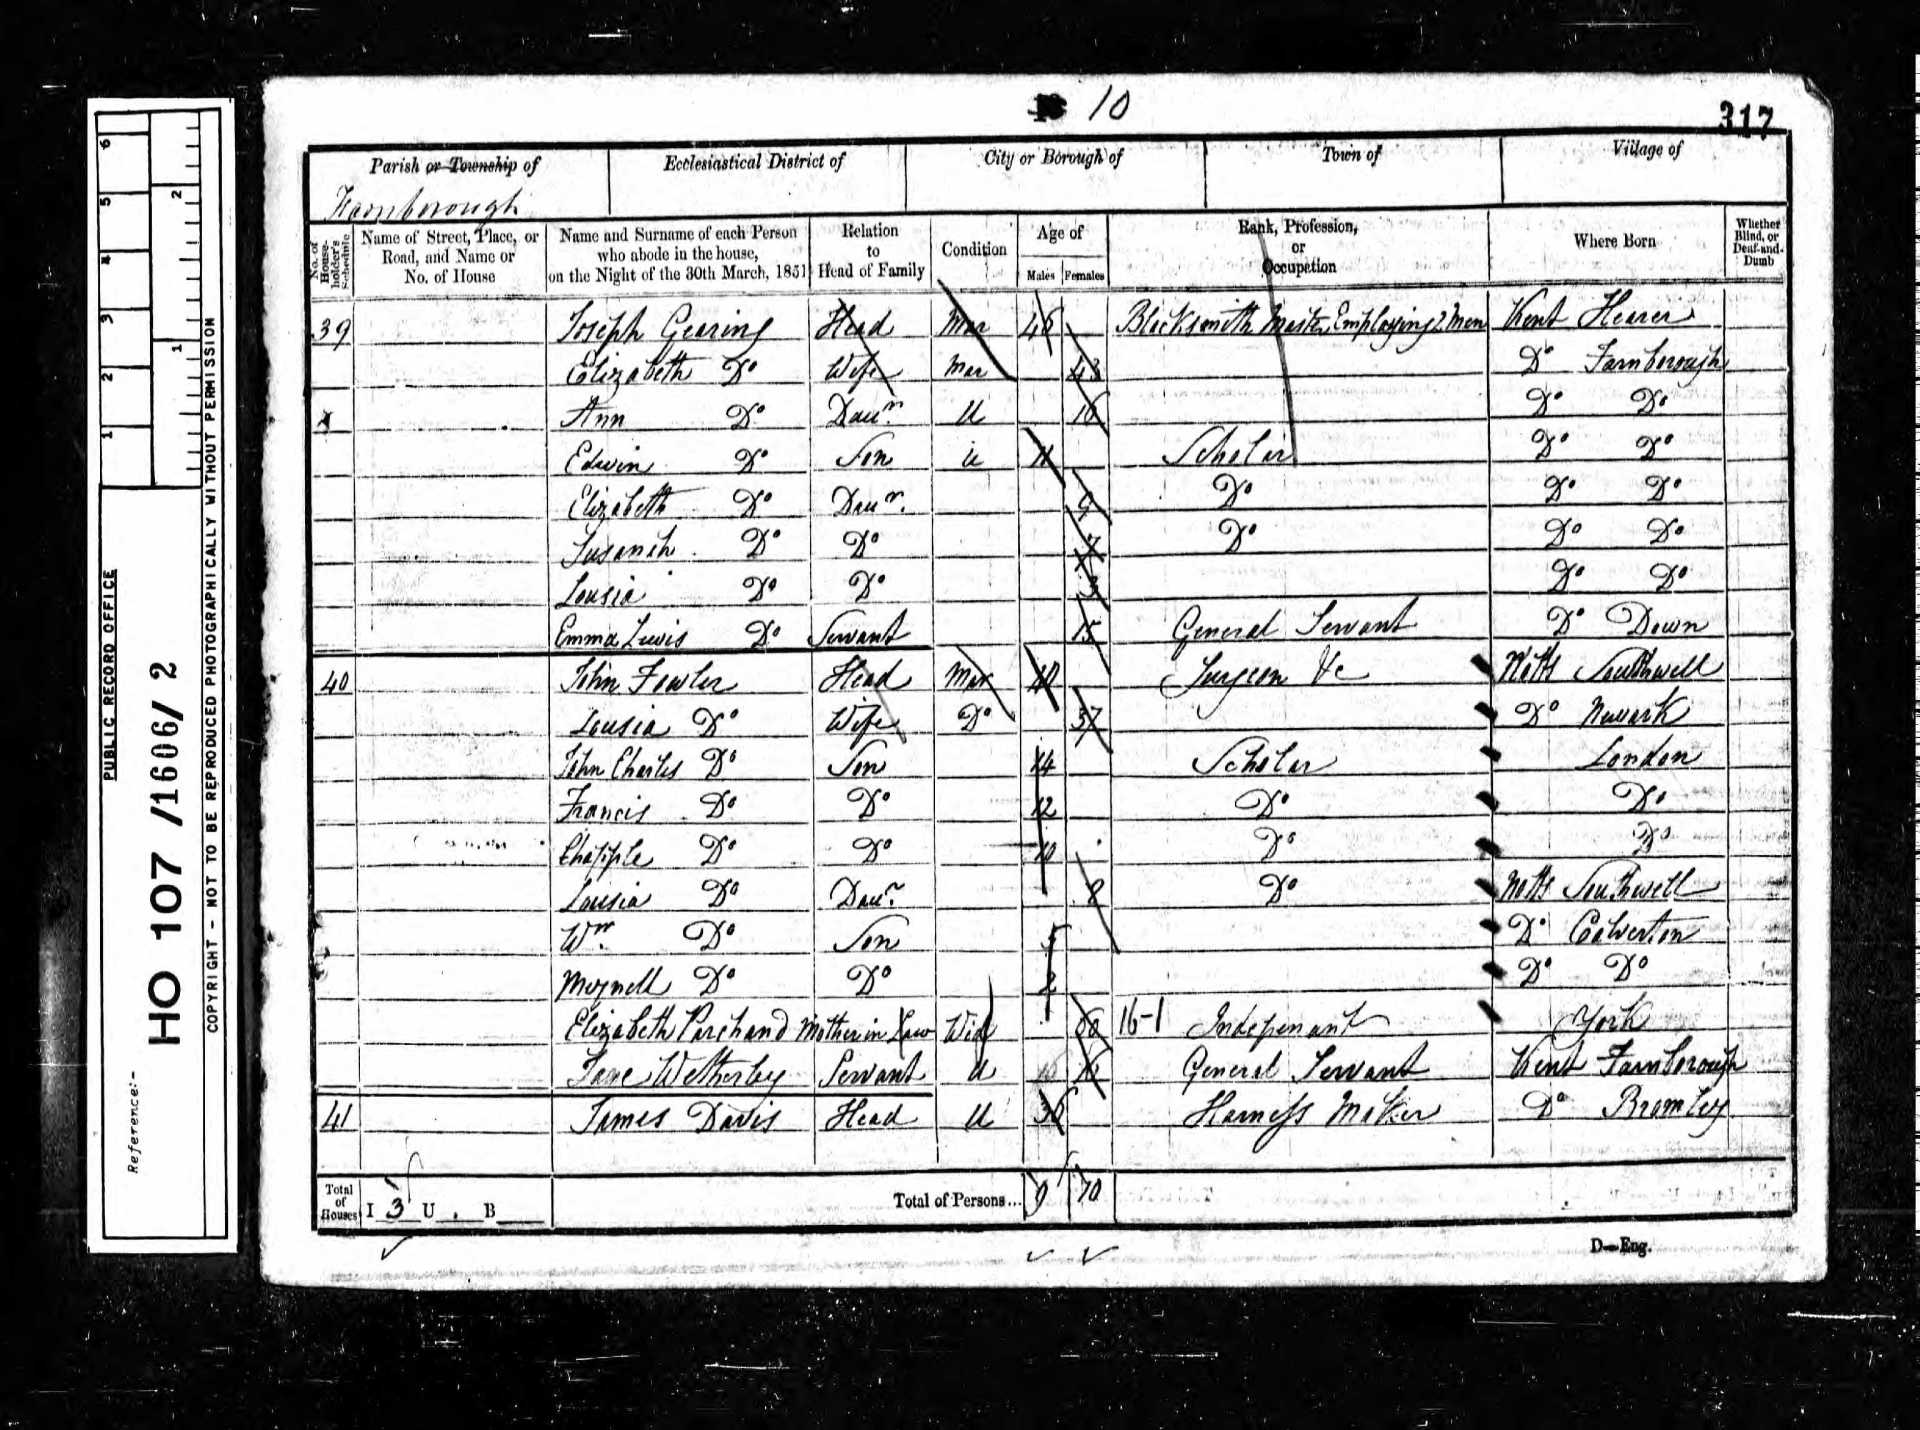 10
317
Parish or Township of Ecclesiastical District of City or Borough of Town of Village of
Farnborough
No. of House-holder's Schedule Name of Street, Place, or Road, and Name or No. of House Name and Surname of each Person who abode in the house, on the Night of the 30th March, 1851 Relation to Head of Family Condition Age of Males Females Rank, Profession, or Occupation Where Born Whether Blind, or Deaf-and-Dumb
39 Joseph Gearing Head Mar 46 Blacksmith Master Employing 2 Men Kent Hearer
Elizabeth Do Wife Mar 43 Do Farnborough
Ann Do Daur. U 16 Do Do
Edwin Do Son U 11 Scholar Do Do
Elizabeth Do Daur. 9 Do Do Do
Susanah Do Do 7 Do Do Do
Lousia Do Do 3 Do Do
Emma Lewis Do Servant 15 General Servant Do Down
40 John Fowler Head Mar 40 Surgeon &c Notts Southwell
Lousia Do Wife Do 37 Do Newark
John Charles Do Son 14 Scholar London
Francis Do Do 12 Do Do
Chapple Do Do 10 Do Do
Lousia Do Daur. 8 Do Notts Southwell
Wm. Do Son 5 Do Calverton
Meynell Do Do 2 Do Do
Elizabeth Parchand Mother in Law Wid 16-1 Indepenant York
Jane Wetherley Servant U 16 General Servant Kent Farnborough
41 James Davis Head U 36 Harness Maker Do Bromley
Total of Houses I 3 U . B Total of Persons... 9 10
D—Eng.
6 5 4 3 2 1
2 1
PUBLIC RECORD OFFICE
Reference:-
HO 107 /1606/ 2
COPYRIGHT - NOT TO BE REPRODUCED PHOTOGRAPHICALLY WITHOUT PERMISSION